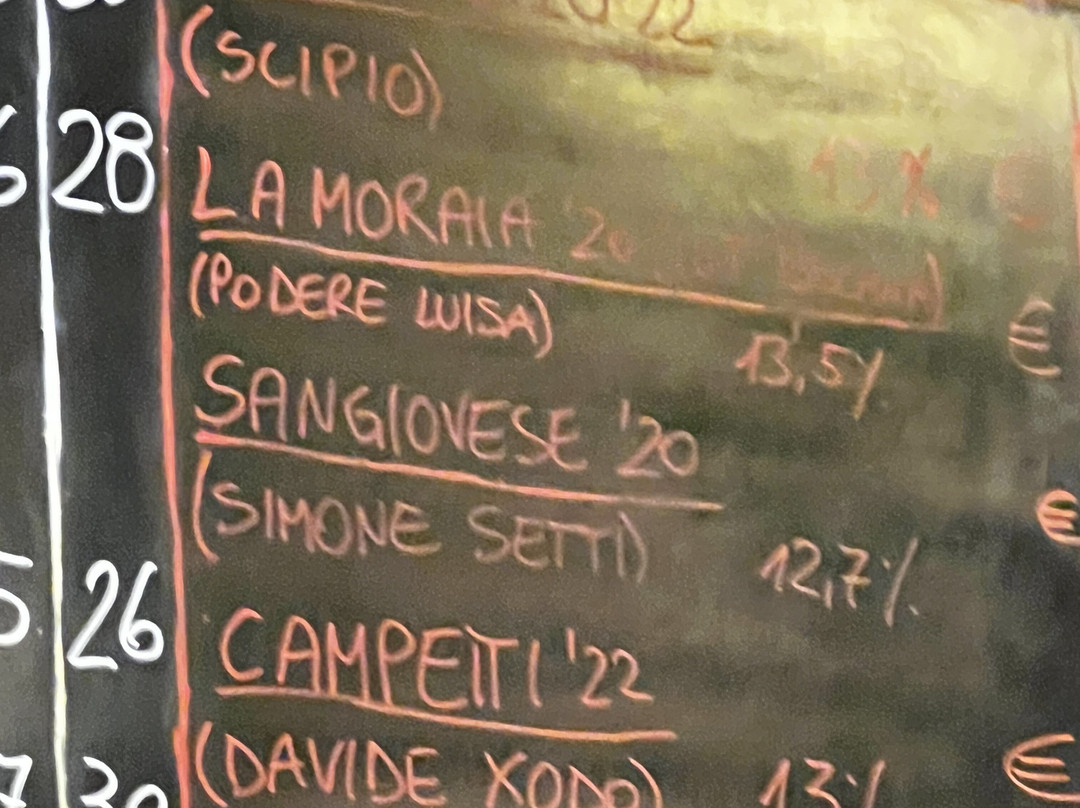 22
(SCIPIO)
28
LA MORAIA '20
13% €
(PODERE LUISA)
13,5% €
SANGIOVESE '20
(SIMONE SETTI)
12,7% €
26
CAMPETTI '22
(DAVIDE XODO)
13% €
30